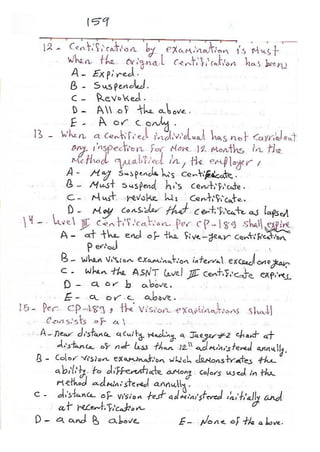 159
12 - Certification by examination is Must
When the orignal certification has been
A - Expired.
B - Suspended.
C - Revoked.
D - All of the above.
E - A or C only.
13 - When a certified individual has not carried out
any inspection for More 12 Months in the
Method qualified in, the employer,
A - May Suspende his certificate.
B - Must suspend his certificate.
C - Must revoke his certificate.
D - May consider that certificate as lapsed
14 - level III Certification per CP-189 shall expire
A - at the end of the five-year certification
period
B - When vision examination interval exceed one year
C - When the ASNT level III certificate expires
D - a or b above.
E - a or c above.
15 - Per CP-189, the vision examinations shall
Consists of a:
A - near distance acuity reading a Jaeger #2 chart at
distance of not less than 12" administered annully.
B - Color vision examination which demonstrates the
ability to differentiate among colors used in the
Method administered annully.
C - distance of vision test administered initially and
at recertification
D - a and B above E - None of the above.